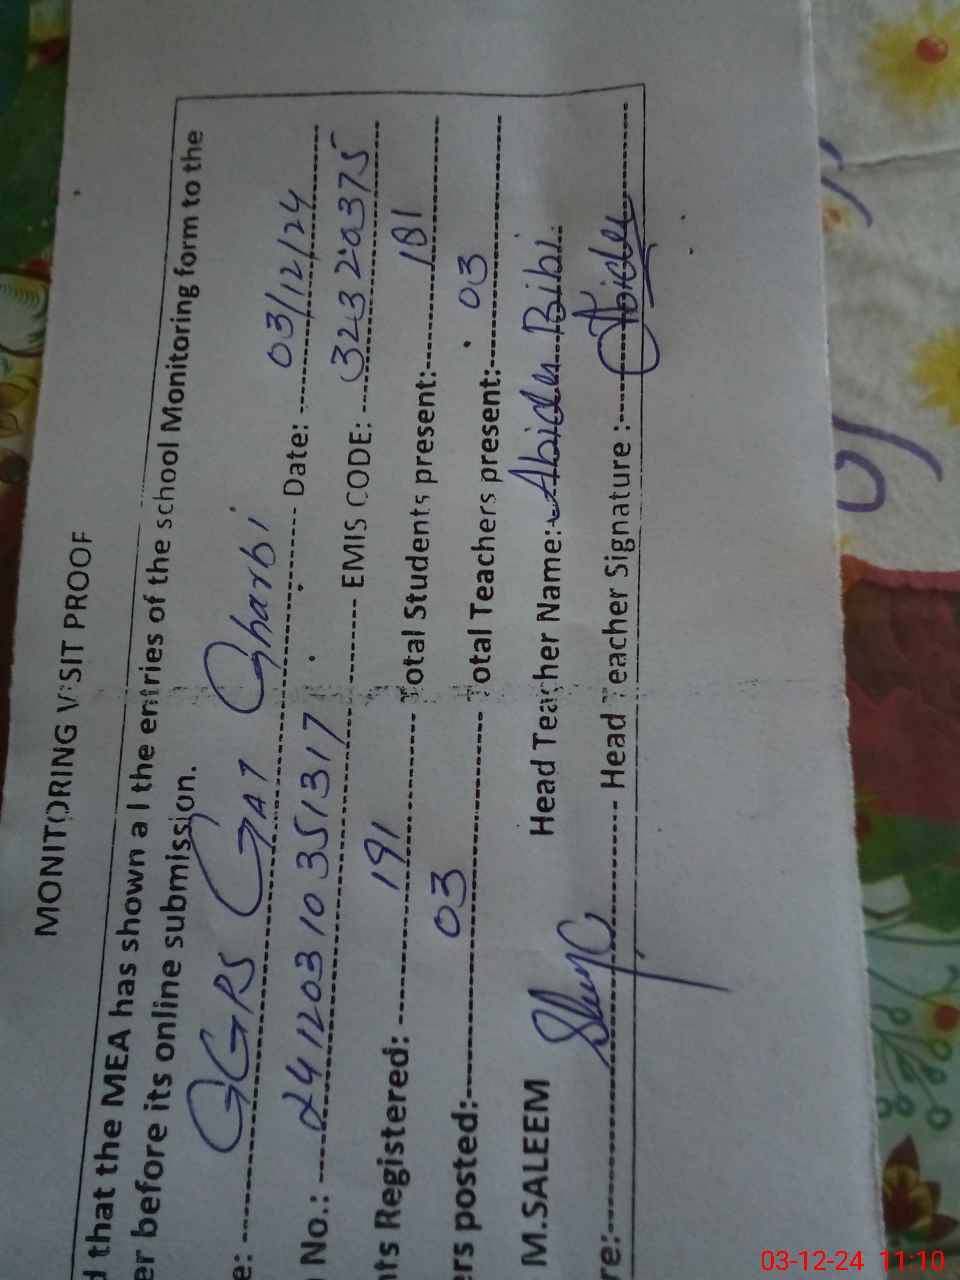 MONITORING VISIT PROOF
d that the MEA has shown all the entries of the school Monitoring form to the
er before its online submission.
e: GGPS GAT Gharbi Date: 03/12/24
No.: 24120310351317 EMIS CODE: 32320375
nts Registered: 191 Total Students present: 181
ers posted: 03 Total Teachers present: 03
M.SALEEM Head Teacher Name: Abida Bibi
re: Head Teacher Signature : Abida
03-12-24 11:10